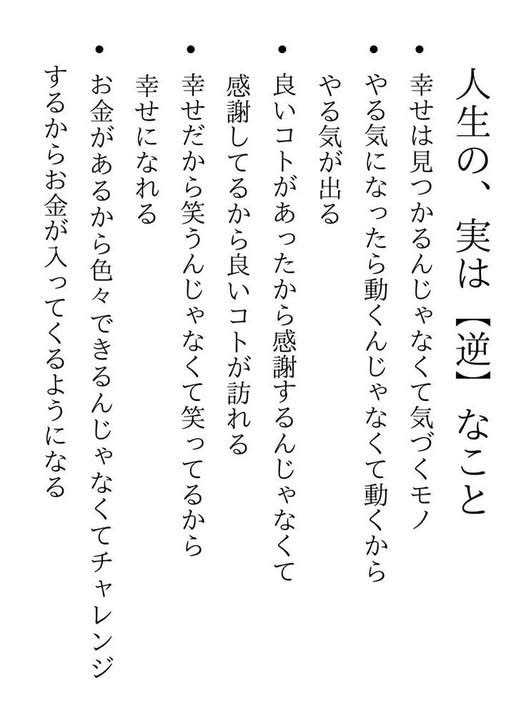 人生の、実は【逆】なこと
・幸せは見つかるんじゃなくて気づくモノ
・やる気になったら動くんじゃなくて動くから
やる気が出る
・良いコトがあったから感謝するんじゃなくて
感謝してるから良いコトが訪れる
・幸せだから笑うんじゃなくて笑ってるから
幸せになれる
・お金があるから色々できるんじゃなくてチャレンジ
するからお金が入ってくるようになる